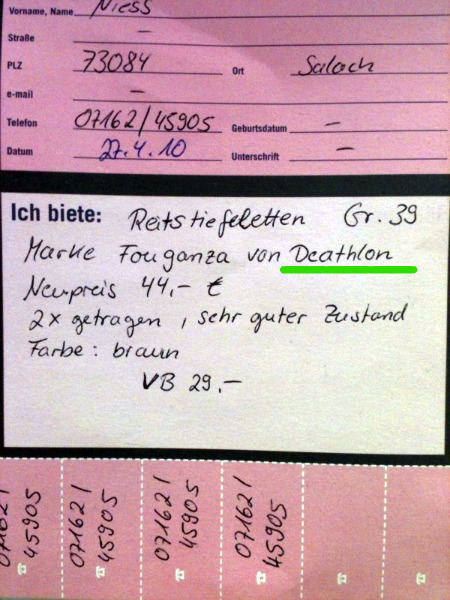 Vorname, Name Niess
Straße –
PLZ 73084 Ort Salach
e-mail –
Telefon 07162/45905 Geburtsdatum –
Datum 27.4.10 Unterschrift –
Ich biete: Reitstiefeletten Gr. 39
Marke Fouganza von Deathlon
Neupreis 44,– €
2x getragen, sehr guter Zustand
Farbe: braun
VB 29,–
07162/
45905
07162/
45905
07162/
45905
07162/
45905